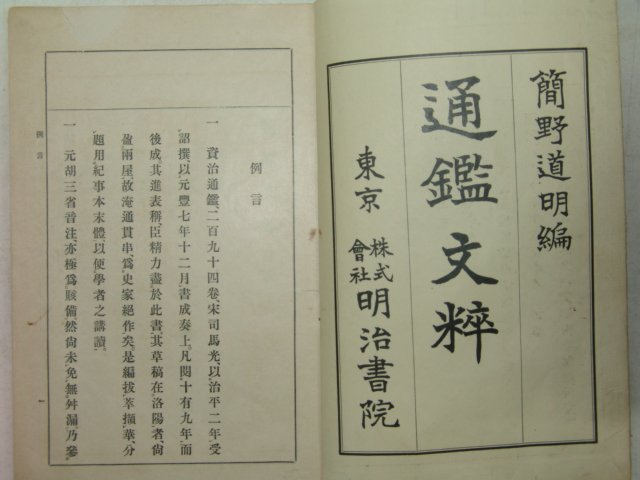 簡野道明編
通鑑文粹
東京
株式
會社
明治書院
例言
一 資治通鑑、二百九十四卷、宋司馬光、以治平二年、受
詔撰、以元豐七年十二月書成奏上。凡閱十有九年、而
後成、其進表稱、臣精力盡於此書、其草稿在洛陽者、尙
盈兩屋、故淹通貫串、爲史家絕作矣。是編拔萃擷華、分
題用紀事本末體、以便學者之講讀。
一 元胡三省音注、亦極爲賅備、然尙未免無舛漏、乃參
例言
一